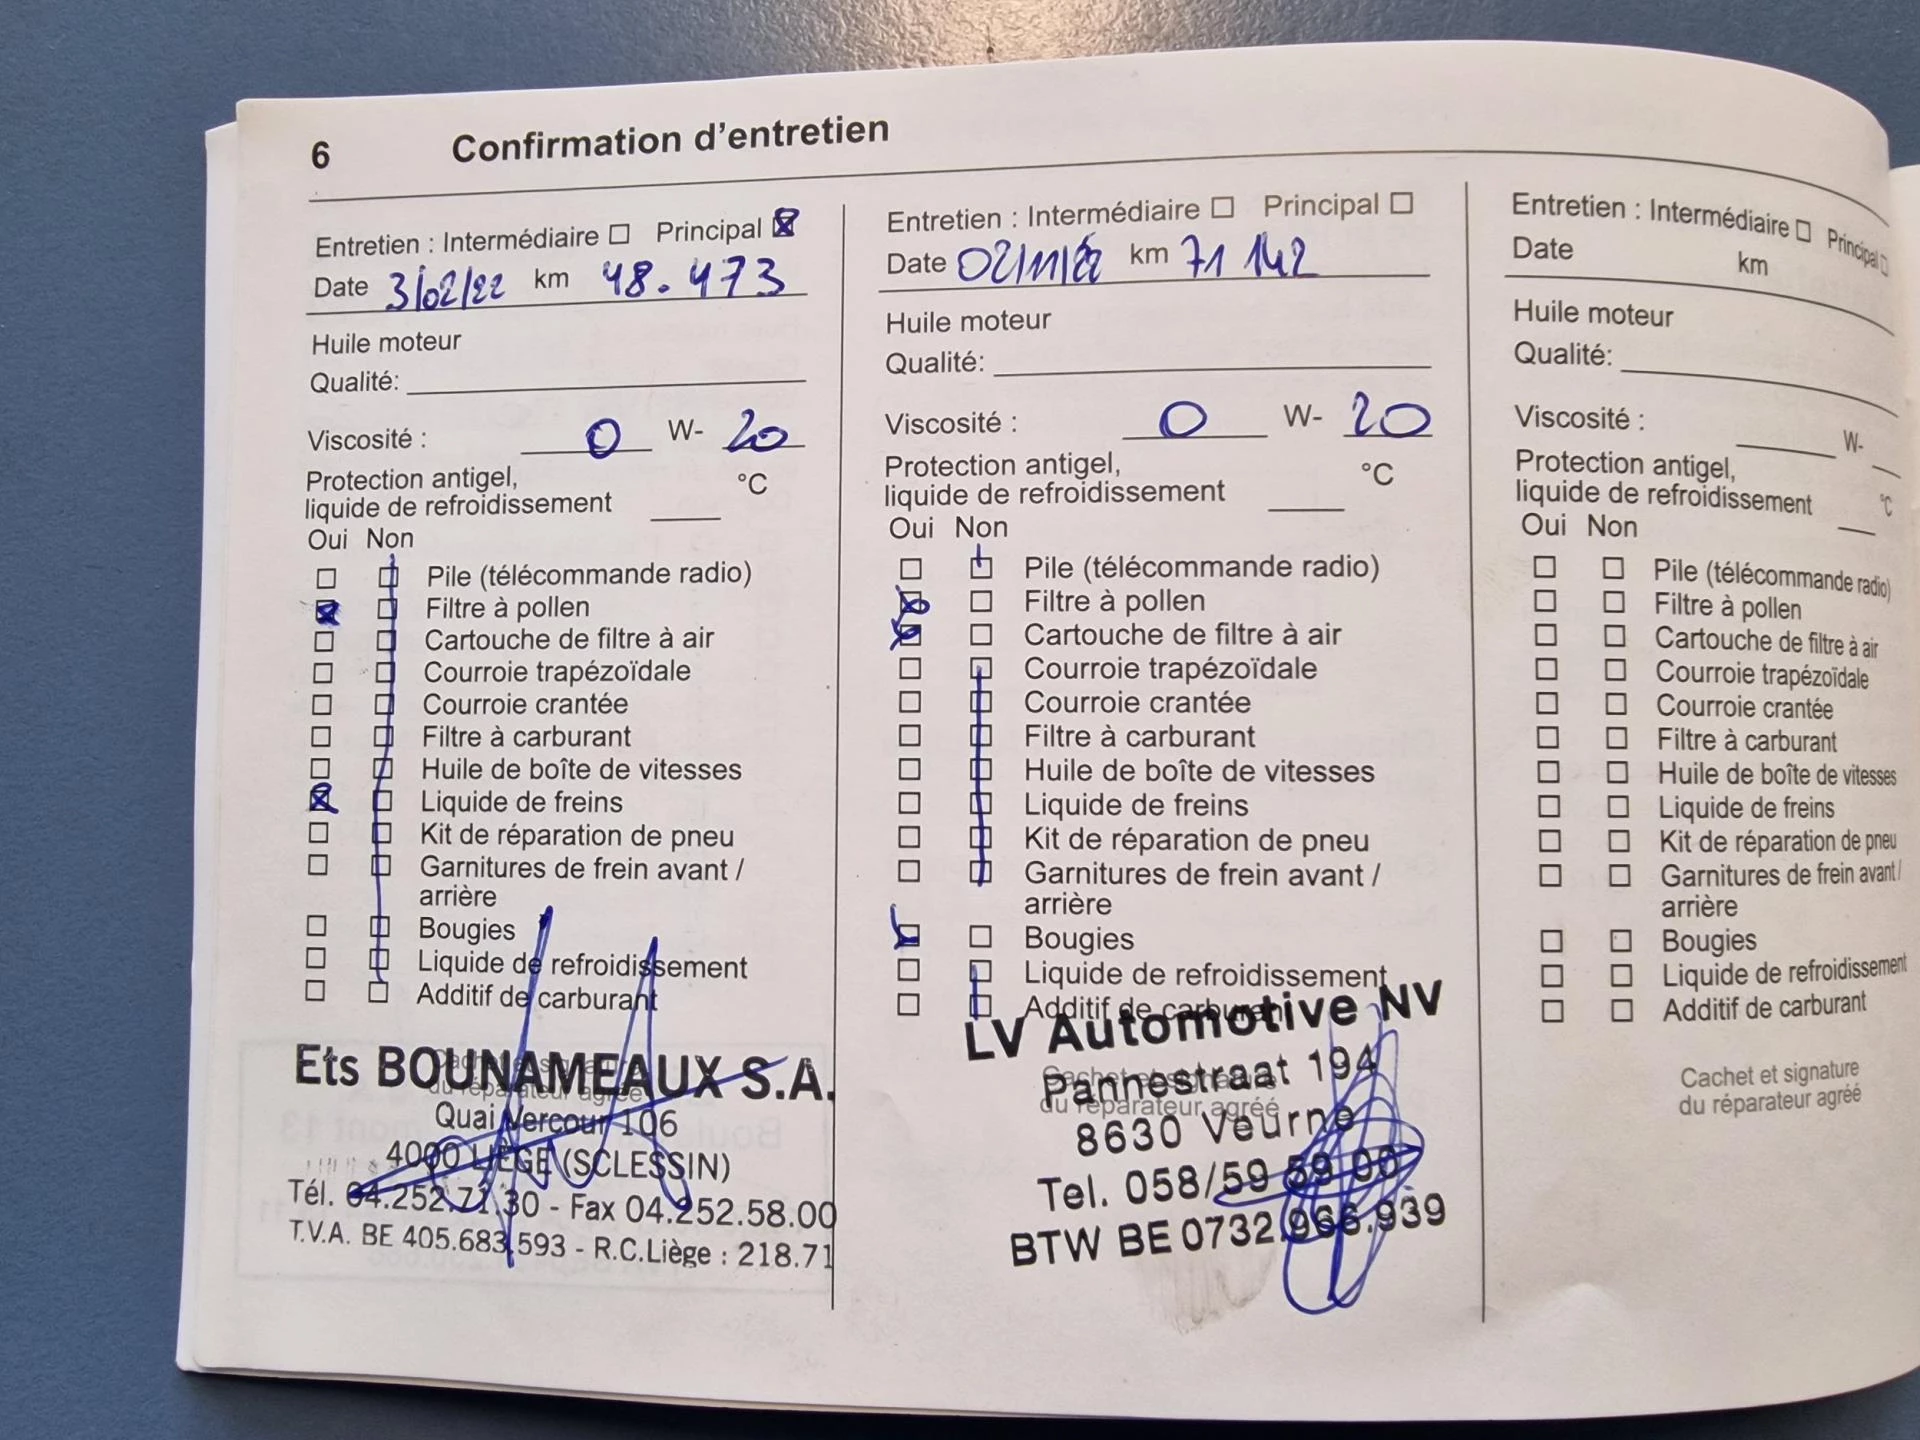 6 Confirmation d'entretien
Entretien : Intermédiaire ☐ Principal ☒
Date 3/02/22 km 48.473
Huile moteur
Qualité:
Viscosité : 0 W- 20
Protection antigel, °C
liquide de refroidissement
Oui Non
Pile (télécommande radio)
Filtre à pollen
Cartouche de filtre à air
Courroie trapézoïdale
Courroie crantée
Filtre à carburant
Huile de boîte de vitesses
Liquide de freins
Kit de réparation de pneu
Garnitures de frein avant /
arrière
Bougies
Liquide de refroidissement
Additif de carburant
Cachet et signature
du réparateur agréé
Ets BOUNAMEAUX S.A.
Quai Vercour 106
4000 LIEGE (SCLESSIN)
Tél. 04.252.71.30 - Fax 04.252.58.00
T.V.A. BE 405.683.593 - R.C.Liège : 218.71
Entretien : Intermédiaire ☐ Principal ☐
Date 02/11/22 km 71 142
Huile moteur
Qualité:
Viscosité : 0 W- 20
Protection antigel, °C
liquide de refroidissement
Oui Non
Pile (télécommande radio)
Filtre à pollen
Cartouche de filtre à air
Courroie trapézoïdale
Courroie crantée
Filtre à carburant
Huile de boîte de vitesses
Liquide de freins
Kit de réparation de pneu
Garnitures de frein avant /
arrière
Bougies
Liquide de refroidissement
Additif de carburant
Cachet et signature
du réparateur agréé
LV Automotive NV
Pannestraat 194
8630 Veurne
Tel. 058/59 59 00
BTW BE 0732.966.939
Entretien : Intermédiaire ☐ Principal ☐
Date km
Huile moteur
Qualité:
Viscosité : W-
Protection antigel,
liquide de refroidissement °C
Oui Non
Pile (télécommande radio)
Filtre à pollen
Cartouche de filtre à air
Courroie trapézoïdale
Courroie crantée
Filtre à carburant
Huile de boîte de vitesses
Liquide de freins
Kit de réparation de pneu
Garnitures de frein avant /
arrière
Bougies
Liquide de refroidissement
Additif de carburant
Cachet et signature
du réparateur agréé